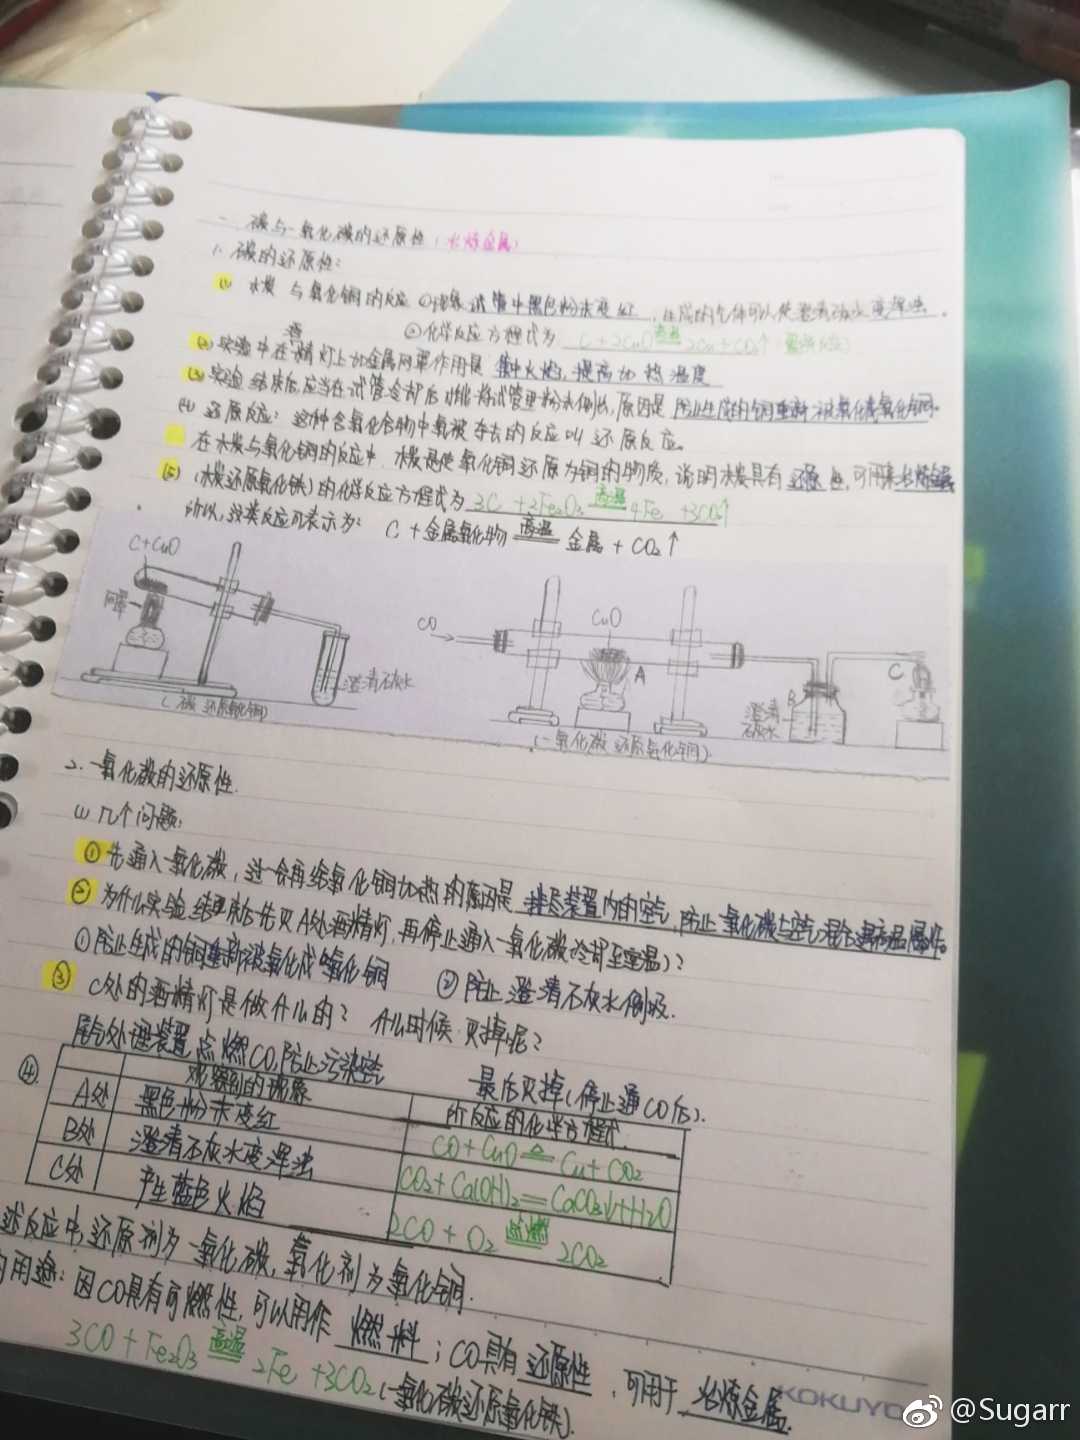 一、碳与一氧化碳的还原性（冶炼金属）
1. 碳的还原性:
(1) 木炭与氧化铜的反应 ①现象 试管中黑色粉末变红，生成的气体可以使澄清石灰水变浑浊。
②化学反应方程式为 C+2CuO 高温 2Cu+CO₂↑ (置换反应)
(2) 实验中在酒精灯上加金属网罩作用是 集中火焰，提高加热温度
(3) 实验结束后应当在试管冷却后才能将试管里粉末倒出，原因是 防止生成的铜重新被氧化成氧化铜。
(4) 还原反应：这种含氧化合物中氧被夺去的反应叫还原反应。
在木炭与氧化铜的反应中，木炭是使氧化铜还原为铜的物质，说明木炭具有还原性，可用来冶炼金属
(5) (木炭还原氧化铁)的化学反应方程式为 3C+2Fe₂O₃ 高温 4Fe+3CO₂↑
所以，这类反应可表示为: C+金属氧化物 高温 金属+CO₂↑
C+CuO
网罩
澄清石灰水
(碳还原氧化铜)
CO
CuO
A
B
澄清石灰水
C
(一氧化碳还原氧化铜)
2. 一氧化碳的还原性.
(1) 几个问题:
① 先通入一氧化碳，过一会再给氧化铜加热的原因是 排尽装置内的空气，防止一氧化碳与空气混合遇高温爆炸。
② 为什么实验结束后先灭A处酒精灯，再停止通入一氧化碳(冷却至室温)?
①防止生成的铜重新被氧化成氧化铜 ②防止澄清石灰水倒吸.
③ C处的酒精灯是做什么的? 什么时候灭掉呢?
尾气处理装置 点燃CO,防止污染空气 最后灭掉(停止通CO后).
④. 观察到的现象 所反应的化学方程式
A处 黑色粉末变红 CO+CuO △ Cu+CO₂
B处 澄清石灰水变浑浊 CO₂+Ca(OH)₂=CaCO₃↓+H₂O
C处 产生蓝色火焰 2CO+O₂ 点燃 2CO₂
述反应中，还原剂为一氧化碳，氧化剂为氧化铜.
的用途: 因CO具有可燃性，可以用作 燃料；CO具有 还原性，可用于 冶炼金属.
3CO+Fe₂O₃ 高温 2Fe+3CO₂ (一氧化碳还原氧化铁).
KOKUYO
@Sugarr